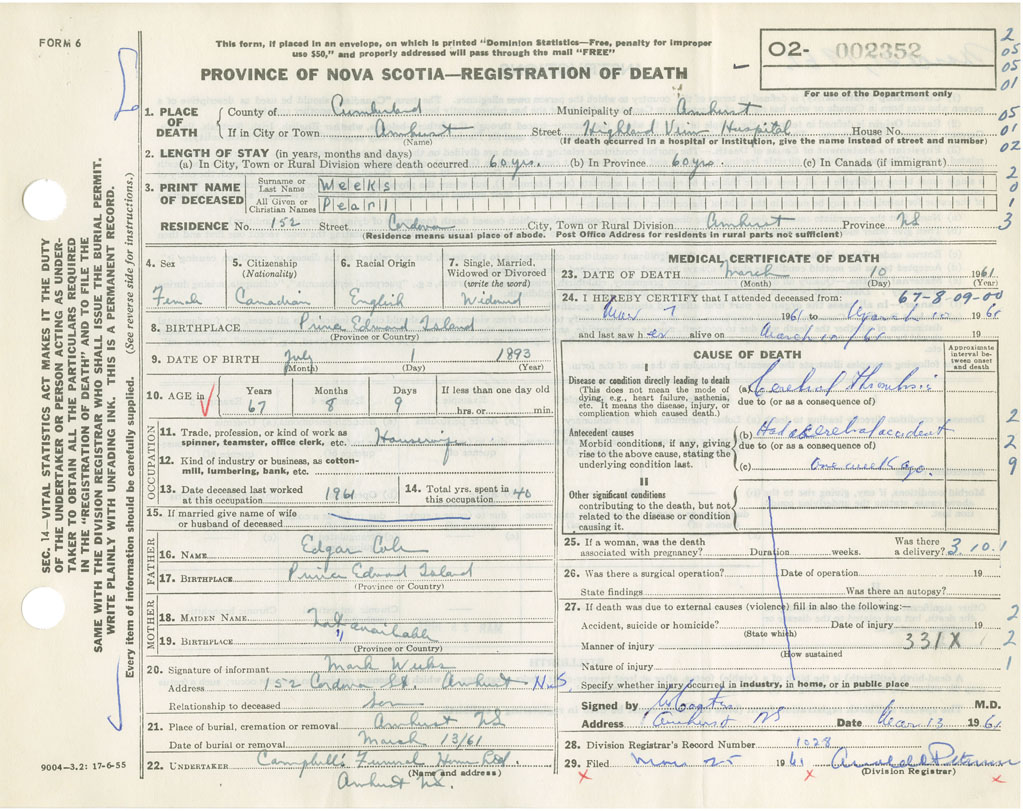 FORM 6
This form, if placed in an envelope, on which is printed "Dominion Statistics—Free, penalty for improper
use $50," and properly addressed will pass through the mail "FREE"
02- 002352
For use of the Department only
PROVINCE OF NOVA SCOTIA—REGISTRATION OF DEATH
1. PLACE OF DEATH
County of Cumberland Municipality of Amherst
If in City or Town Amherst Street Highland View Hospital House No.
(Name) (If death occurred in a hospital or institution, give the name instead of street and number)
2. LENGTH OF STAY (in years, months and days)
(a) In City, Town or Rural Division where death occurred 60 yrs. (b) In Province 60 yrs. (c) In Canada (if immigrant)
3. PRINT NAME OF DECEASED
Surname or Last Name Weeks
All Given or Christian Names Pearl
RESIDENCE No. 152 Street Cordova City, Town or Rural Division Amherst Province NS
(Residence means usual place of abode. Post Office Address for residents in rural parts not sufficient)
4. Sex
Female
5. Citizenship (Nationality)
Canadian
6. Racial Origin
English
7. Single, Married, Widowed or Divorced (write the word)
Widowed
8. BIRTHPLACE Prince Edward Island
(Province or Country)
9. DATE OF BIRTH July 1 1893
(Month) (Day) (Year)
10. AGE in
Years Months Days If less than one day old
67 8 9 hrs. or min.
OCCUPATION
11. Trade, profession, or kind of work as
spinner, teamster, office clerk, etc. Housewife
12. Kind of industry or business, as cotton-
mill, lumbering, bank, etc.
13. Date deceased last worked
at this occupation 1961
14. Total yrs. spent in
this occupation 40
15. If married give name of wife
or husband of deceased
FATHER
16. NAME Edgar Cole
17. BIRTHPLACE Prince Edward Island
(Province or Country)
MOTHER
18. MAIDEN NAME Not available
19. BIRTHPLACE "
(Province or Country)
20. Signature of informant Mark Weeks
Address 152 Cordova St. Amherst N.S.
Relationship to deceased Son
21. Place of burial, cremation or removal Amherst NS
Date of burial or removal March 13/61
22. UNDERTAKER Campbell's Funeral Home Ltd.
(Name and address)
Amherst N.S.
9004—3.2: 17-6-55
MEDICAL CERTIFICATE OF DEATH
23. DATE OF DEATH March 10 1961
(Month) (Day) (Year)
24. I HEREBY CERTIFY that I attended deceased from: 67-8-09-00
Mar 7 1961 to March 10 1961
and last saw her alive on March 10/61 19
CAUSE OF DEATH
Approximate interval between onset and death
I
Disease or condition directly leading to death
(This does not mean the mode of
dying, e.g., heart failure, asthenia,
etc. It means the disease, injury, or
complication which caused death.)
(a) Cerebral Thrombosis
due to (or as a consequence of)
Antecedent causes
Morbid conditions, if any, giving
rise to the above cause, stating the
underlying condition last.
(b) Had a cerebral accident
due to (or as a consequence of)
(c) one week ago.
II
Other significant conditions
contributing to the death, but not
related to the disease or condition
causing it.
25. If a woman, was the death
associated with pregnancy? Duration weeks. Was there
a delivery? 3.10.1
26. Was there a surgical operation? Date of operation 19
State findings Was there an autopsy?
27. If death was due to external causes (violence) fill in also the following:—
Accident, suicide or homicide? Date of injury 19
(State which)
Manner of injury 331X
(How sustained
Nature of injury
Specify whether injury occurred in industry, in home, or in public place
Signed by M.D.
Address Amherst NS Date Mar 13 1961
28. Division Registrar's Record Number 1028
29. Filed Mar 25 1961
(Division Registrar)
2
05
05
01
05
01
02
2
0
1
3
2
2
9
2
2
1
SEC. 14—VITAL STATISTICS ACT MAKES IT THE DUTY
OF THE UNDERTAKER OR PERSON ACTING AS UNDER-
TAKER TO OBTAIN ALL THE PARTICULARS REQUIRED
IN THE "REGISTRATION OF DEATH" AND TO FILE THE
SAME WITH THE DIVISION REGISTRAR WHO SHALL ISSUE THE BURIAL PERMIT.
WRITE PLAINLY WITH UNFADING INK. THIS IS A PERMANENT RECORD.
Every item of information should be carefully supplied. (See reverse side for instructions.)